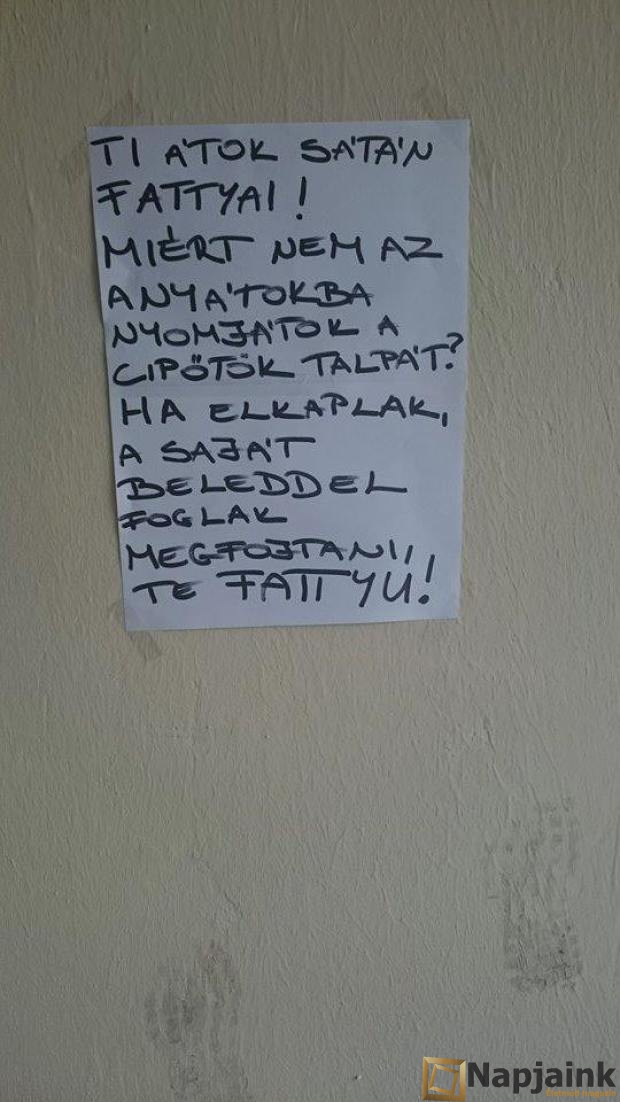 TI ÁTOK SÁTÁN
FATTYAI!
MIÉRT NEM AZ
ANYÁTOKBA
NYOMJÁTOK A
CIPŐTÖK TALPÁT?
HA ELKAPLAK,
A SAJÁT
BELEDDEL
FOGLAK
MEGFOJTANI,
TE FATTYU!
Napjaink